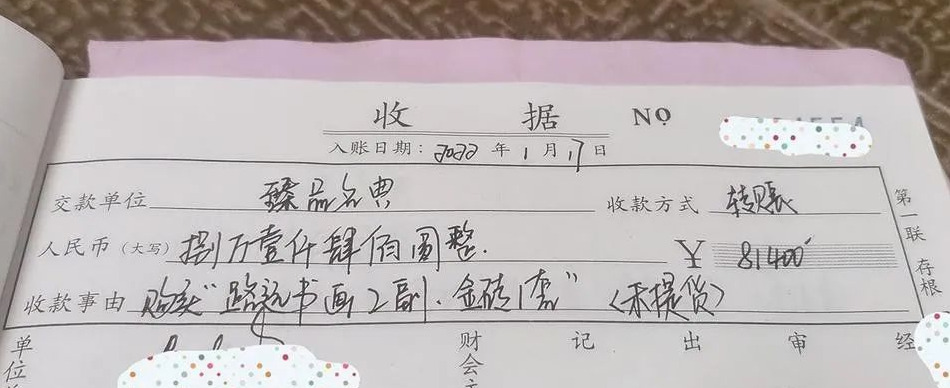 收 据 NO
入账日期：2022 年 1 月 17 日
交款单位 臻品名典 收款方式 转账
人民币（大写） 捌万壹仟肆佰圆整. ¥ 81400
收款事由 购买“路远书画2副.金砖1套”（未提货）
第一联 存根
单位 财会主 记 出 审 经